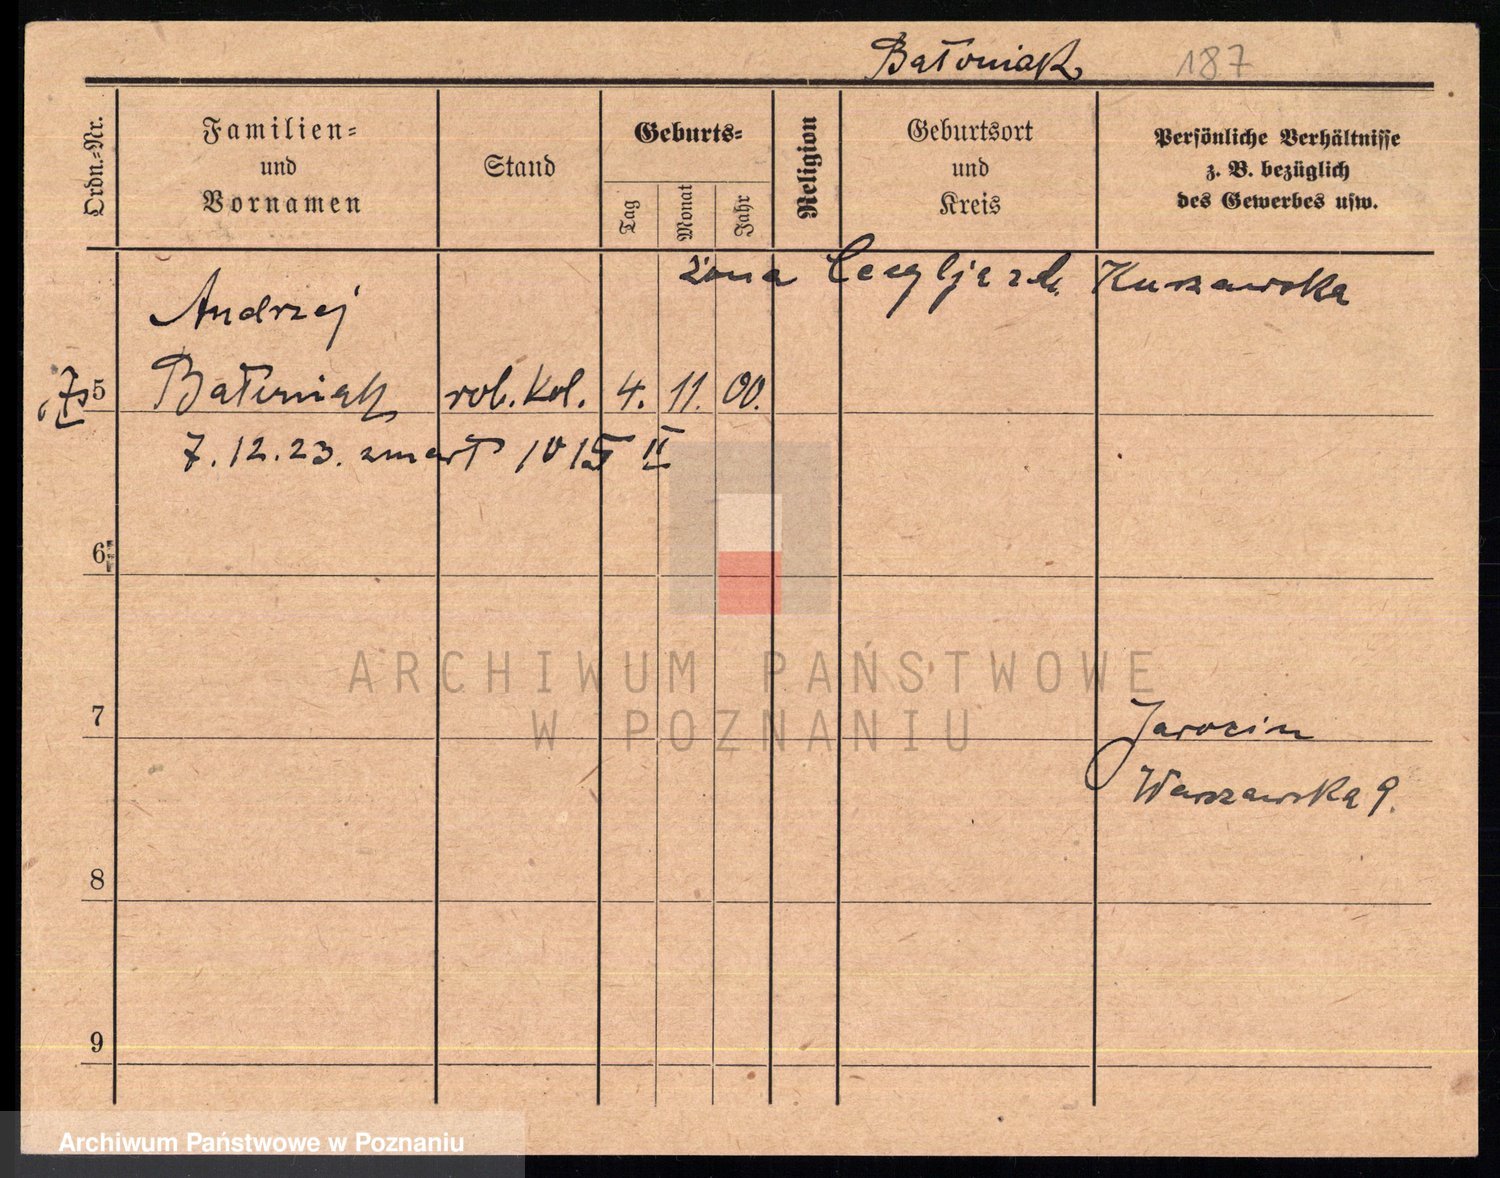 Batoniak 187
Ordn.-Nr.
Familien-
und
Vornamen
Stand
Geburts-
Tag
Monat
Jahr
Religion
Geburtsort
und
Kreis
Persönliche Verhältnisse
z. B. bezüglich
des Gewerbes usw.
żona Kurzawska
Andrzej
5 Batoniak rob. kol. 4. 11. 00.
7. 12. 23. zmarł
6
ARCHIWUM PAŃSTWOWE
W POZNANIU
7 Jarocin
Warszawska 9.
8
9
Archiwum Państwowe w Poznaniu